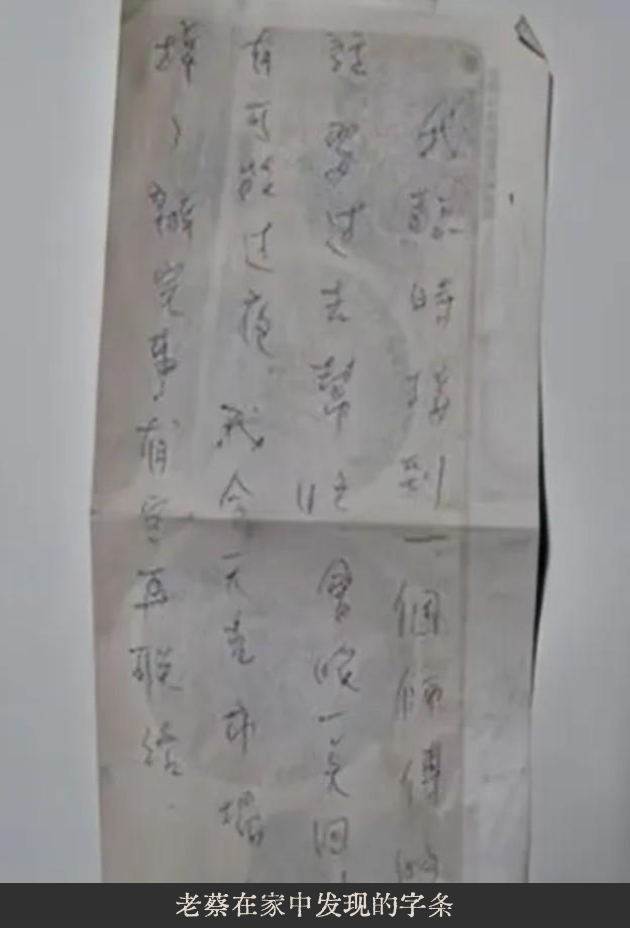 我臨時接到一個師傅
話要过去幫忙會晚一点回
有可能过夜我今天去市場
辦完事有空再联络
老蔡在家中发现的字条